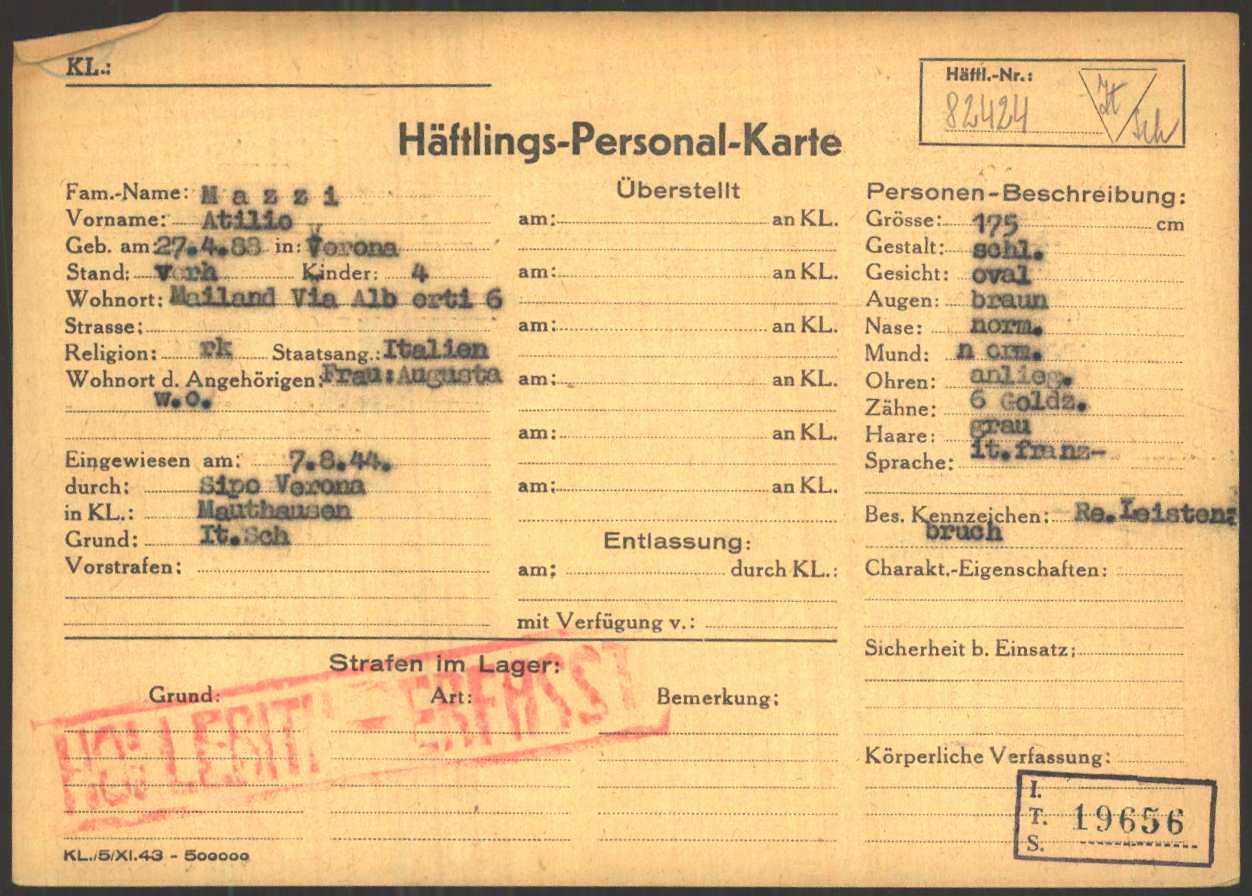 KL.:
Häftl.-Nr.:
82424
It
Sch
Häftlings-Personal-Karte
Fam.-Name: Mazzi
Vorname: Atilio
Geb. am 27.4.88 in: Verona
Stand: verh Kinder: 4
Wohnort: Mailand Via Alb erti 6
Strasse:
Religion: rk Staatsang.: Italien
Wohnort d. Angehörigen: Frau: Augusta
w.o.
Eingewiesen am: 7.8.44.
durch: Sipo Verona
in KL.: Mauthausen
Grund: It.Sch
Vorstrafen:
Überstellt
am: an KL.
am: an KL.
am: an KL.
am: an KL.
am: an KL.
am: an KL.
Entlassung:
am: durch KL.:
mit Verfügung v.:
Personen-Beschreibung:
Grösse: 175 cm
Gestalt: schl.
Gesicht: oval
Augen: braun
Nase: norm.
Mund: n orm.
Ohren: anlieg.
Zähne: 6 Goldz.
Haare: grau
Sprache: it.franz-
Bes. Kennzeichen: Re.Leisten-
bruch
Charakt.-Eigenschaften:
Sicherheit b. Einsatz:
Körperliche Verfassung:
Strafen im Lager:
Grund: Art: Bemerkung:
HOLLERITH - ERFASST
I.
T. 19656
S.
KL./5/XI.43 - 500000